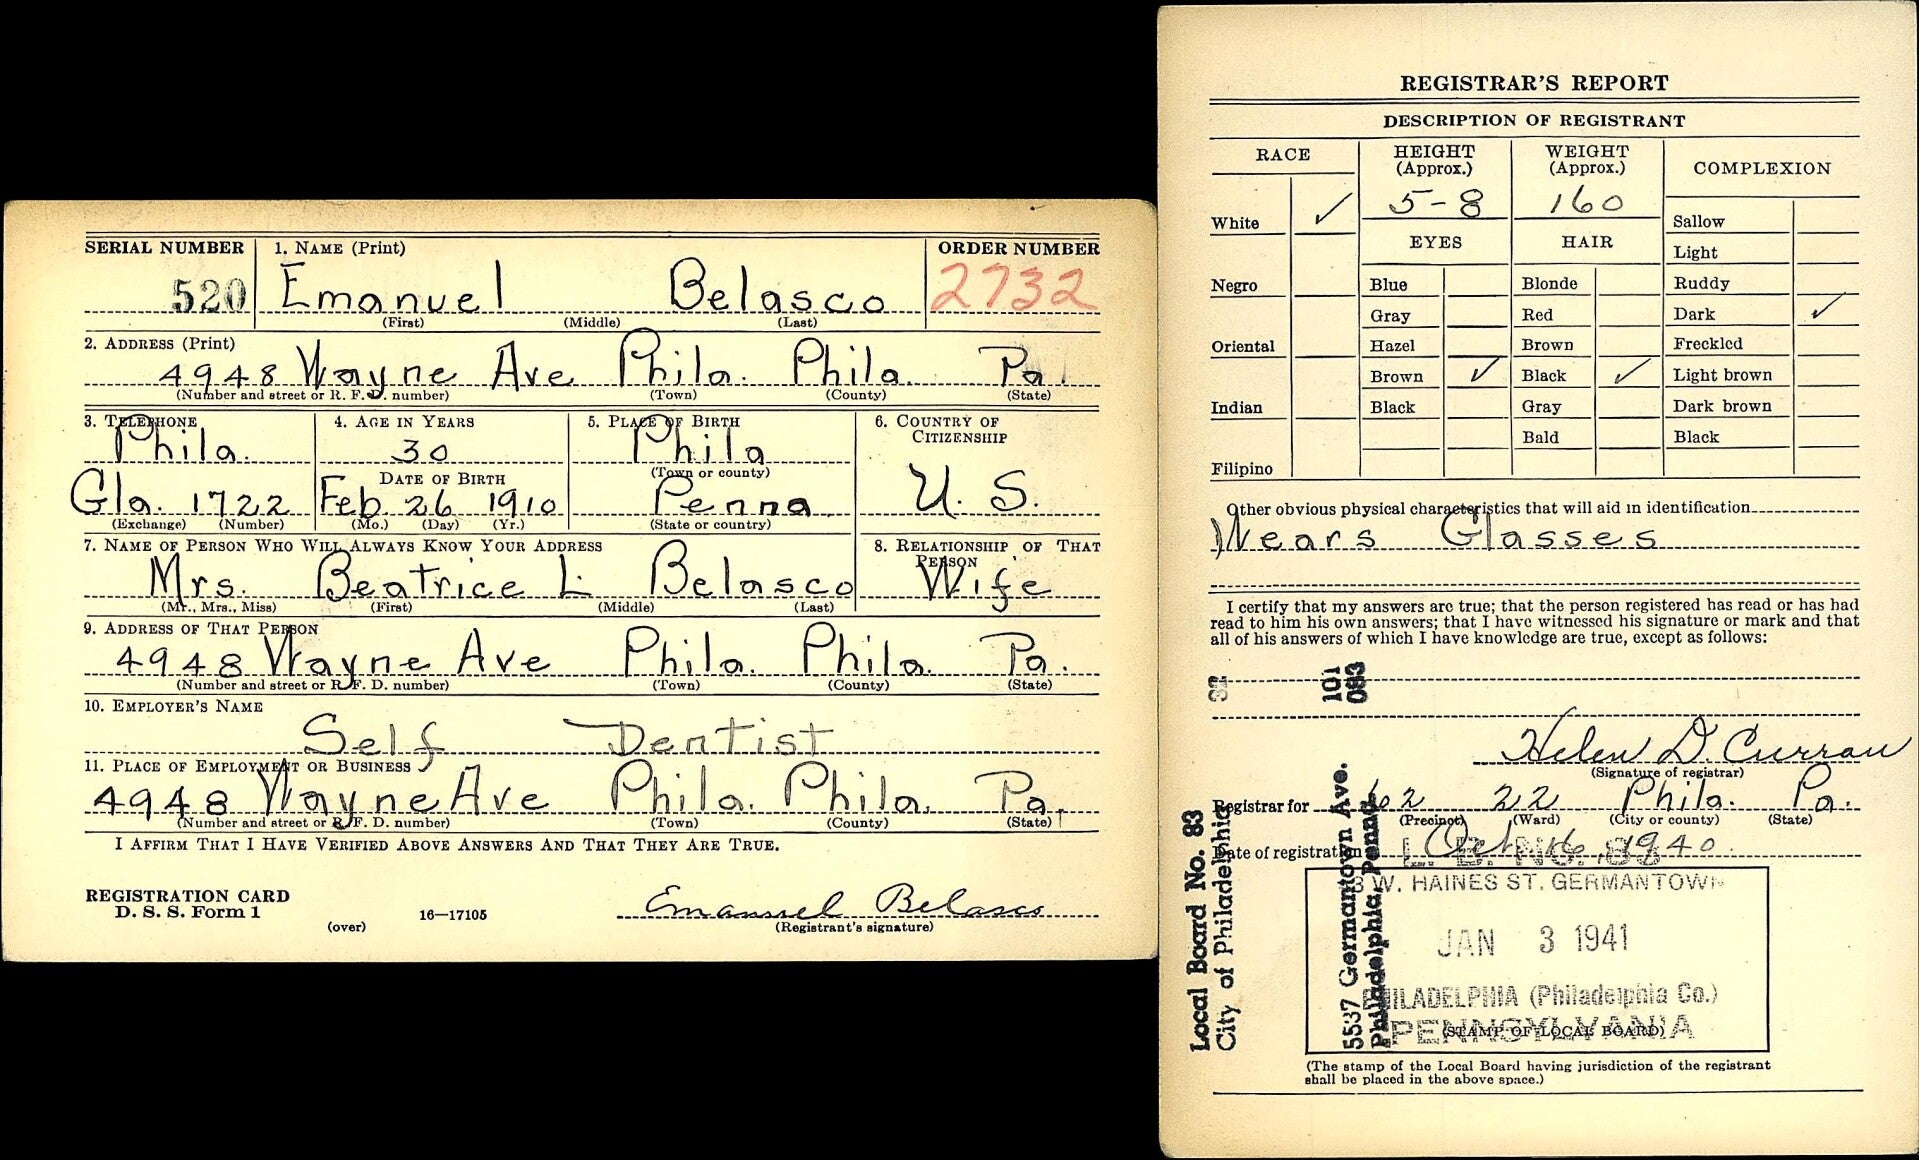 SERIAL NUMBER 1. NAME (Print) ORDER NUMBER
520 Emanuel Belasco 2732
(First) (Middle) (Last)
2. ADDRESS (Print)
4948 Wayne Ave Phila. Phila. Pa.
(Number and street or R. F. D. number) (Town) (County) (State)
3. TELEPHONE 4. AGE IN YEARS 5. PLACE OF BIRTH 6. COUNTRY OF CITIZENSHIP
Phila. 30 Phila
DATE OF BIRTH (Town or county)
Gla. 1722 Feb 26 1910 Penna. U. S.
(Exchange) (Number) (Mo.) (Day) (Yr.) (State or country)
7. NAME OF PERSON WHO WILL ALWAYS KNOW YOUR ADDRESS 8. RELATIONSHIP OF THAT PERSON
Mrs. Beatrice L Belasco Wife
(Mr., Mrs., Miss) (First) (Middle) (Last)
9. ADDRESS OF THAT PERSON
4948 Wayne Ave Phila. Phila. Pa.
(Number and street or R. F. D. number) (Town) (County) (State)
10. EMPLOYER'S NAME
Self Dentist
11. PLACE OF EMPLOYMENT OR BUSINESS
4948 Wayne Ave Phila. Phila. Pa.
(Number and street or R. F. D. number) (Town) (County) (State)
I AFFIRM THAT I HAVE VERIFIED ABOVE ANSWERS AND THAT THEY ARE TRUE.
REGISTRATION CARD
D. S. S. Form 1 16—17105 Emanuel Belasco
(over) (Registrant's signature)
REGISTRAR'S REPORT
DESCRIPTION OF REGISTRANT
RACE HEIGHT (Approx.) WEIGHT (Approx.) COMPLEXION
White ✓ 5-8 160 Sallow
EYES HAIR Light
Negro Blue Blonde Ruddy
Gray Red Dark ✓
Oriental Hazel Brown Freckled
Brown ✓ Black ✓ Light brown
Indian Black Gray Dark brown
Bald Black
Filipino
Other obvious physical characteristics that will aid in identification
Wears Glasses
I certify that my answers are true; that the person registered has read or has had
read to him his own answers; that I have witnessed his signature or mark and that
all of his answers of which I have knowledge are true, except as follows:
32 101
083
Helen D. Curran
(Signature of registrar)
Registrar for 62 22 Phila. Pa.
(Precinct) (Ward) (City or county) (State)
Date of registration Oct. 16, 1940
L. B. NO. 83
W. HAINES ST. GERMANTOWN
JAN 3 1941
PHILADELPHIA (Philadelphia Co.)
PENNSYLVANIA
(STAMP OF LOCAL BOARD)
(The stamp of the Local Board having jurisdiction of the registrant
shall be placed in the above space.)
Local Board No. 83
City of Philadelphia
5537 Germantown Ave.
Philadelphia, Penna.